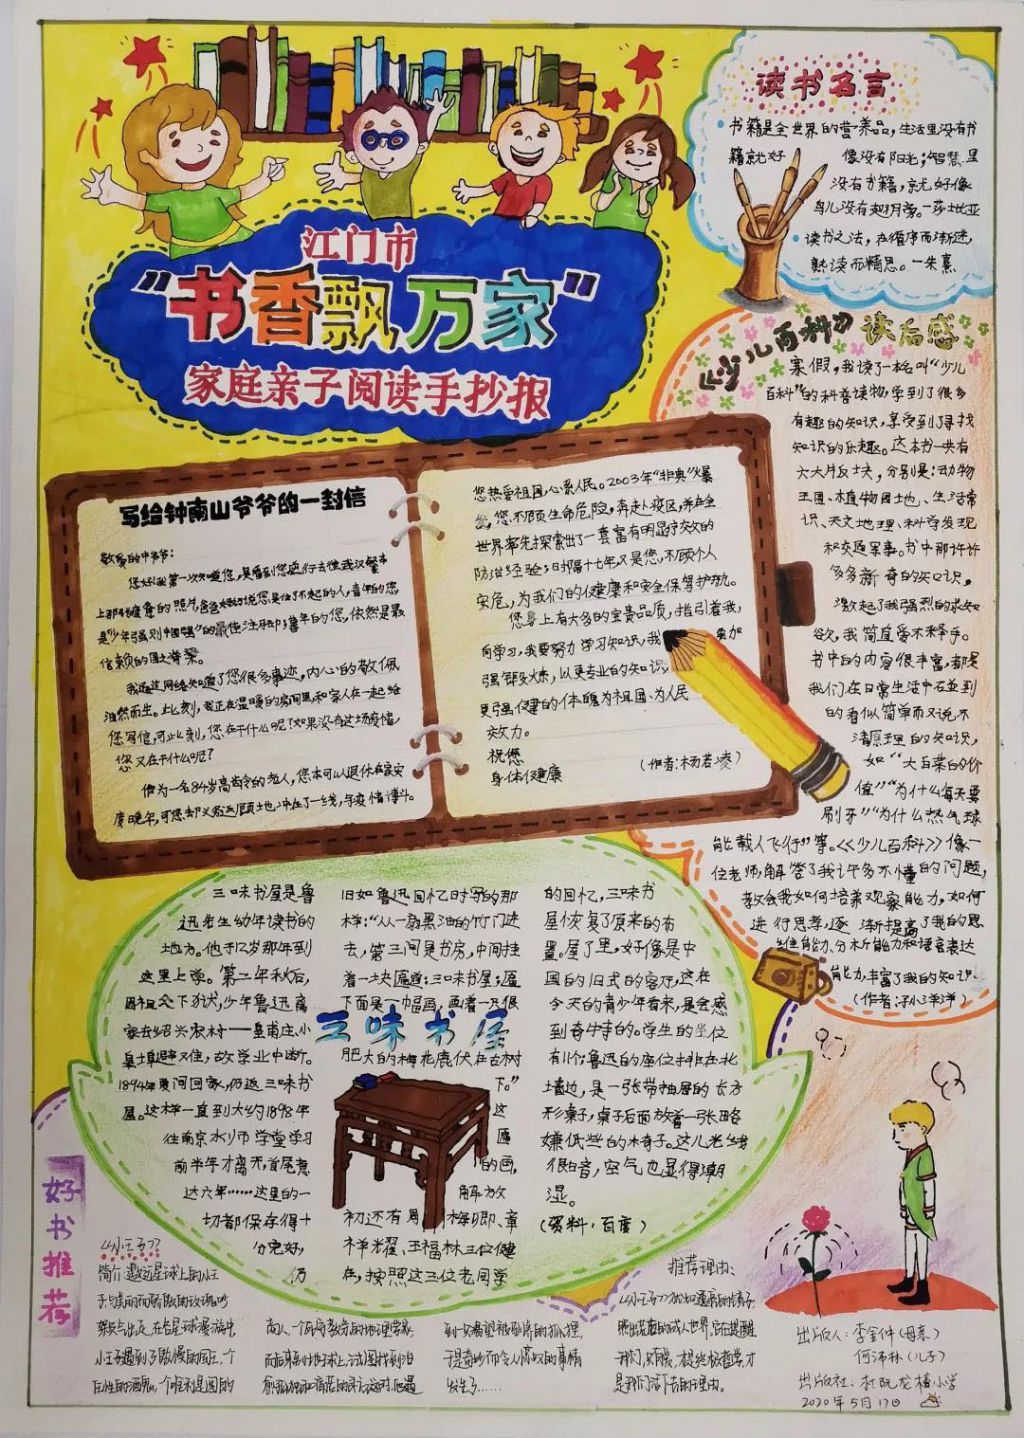 江门市
“书香飘万家”
家庭亲子阅读手抄报
读书名言
书籍是全世界的营养品,生活里没有书
籍就好 像没有阳光;智慧里
没有书籍,就好像
鸟儿没有翅膀。—莎士比亚
读书之法,在循序而渐进,
熟读而精思。—朱熹
《少儿百科》读后感
寒假,我读了一本名叫“少儿
百科”的科普读物,学到了很多
有趣的知识,享受到了寻找
知识的乐趣。这本书一共有
六大片反块,分别是:动物
王国、植物园地、生活常
识、天文地理、科学发现
和交通军事。书中那许许
多多新奇的知识,
激起了我强烈的求知
欲,我简直爱不释手。
书中的内容很丰富,都是
我们在日常生活中
的看似简单而又说不
清原理的知识,
如“大白菜的价
值”“为什么每天要
刷牙”“为什么热气球
能载人飞行”等。<<少儿百科>>像一
位老师,解答了我许多不懂的问题,
教会我如何培养观察能力,如何
进行思考,逐渐提高了我的思
维能力,分析能力和语言表达
能力,丰富了我的知识.
写给钟南山爷爷的一封信
敬爱的钟爷爷:
您好!第一次知道您,是看到您
上那张疲惫的照片,爸爸
是“少年强则中国强”的最佳注脚,
信赖的国之脊梁。
我通过网络知道了您很多事迹,内心的敬佩
油然而生。此刻,我正在温暖的房间里和家人在一起给
您写信,可此刻,您在干什么呢?如果没有这场疫情,
您又在干什么呢?
作为一名84岁高龄的老人,您本可以退休在家安
度晚年,可您却义
您热爱祖国,心系人民。2003年“非典”爆
发,您不顾生命危险,奔赴疫区,并在全
世界率先探索出了一套富有明显疗效的
防治经验;时隔十七年,又是您,不顾个人
安危,为我们的健康和安全保驾护航。
您身上有太多的宝贵品质,指引着我,
向学习,我要努力学习知识,我 更加
强锻炼,以更专业的知识
更强健的体魄为祖国、为人民
效力。
祝您
身体健康
(作者:杨若凌)
三味书屋是鲁
迅先生幼年读书的
地方。他于12岁那年到
这里上学。第二年秋后,
因祖父下狱,少年鲁迅离
家去绍兴农村——皇甫庄、小
皋埠避难,故学业中断。
1894年夏间回家,仍返三味书
屋。这样一直到大约1898年
往南京水师学堂学习
前半年才离开,首尾
达六年……这里的一
切都保存得十
分完好,
仍
旧如鲁迅回忆时写的那
样:“从一扇黑油的竹门进
去,第三间是书房,中间挂
着一块匾道:三味书屋;匾
下面是一幅画,画着一只很
三味书屋
肥大的梅花鹿伏在古树
下。”
这
匾
的画,
解放
初还有周梅卿、章
祥耀、王福林三位健
在,按照这三位老同学
的回忆,三味书
屋恢复了原来的布
置。屋了里,好像是中
国的旧式的客厅,这在
今天的青少年看来,是会感
到奇特的。学生的坐位
有八个;鲁迅的座位排在北
墙边,是一张带抽屉的长方
形桌子,桌子后面放着一张略
嫌低些的木椅子。这儿光线
很暗,空气也显得潮
湿。
(资料:百度)
好书推荐
《小王子》
简介:遥远星球上的小王
子,与美丽而骄傲的玫瑰吵
小王子遇到了傲慢的国王、个
商人、一个
发生了……
推荐理由:
照出荒唐的成人世界,
是我们活下去的理由。
出版人:李金仲(母亲)
何沛林(儿子)
出版社:杜阮龙榜小学
2020年5月17日